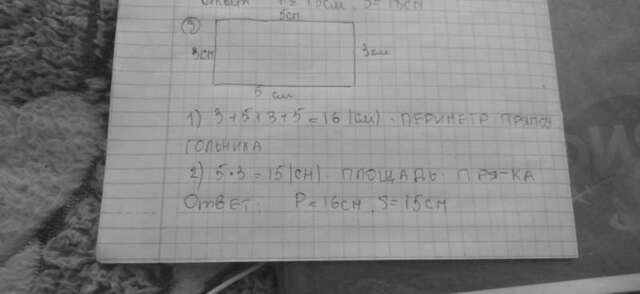 Ответ P = 16см, S = 15см
5см
3
3см 3см
5 см
1) 3+5+3+5=16(см) - ПЕРИМЕТР ПРЯМОУ
ГОЛЬНИКА
2) 5·3=15(см) - ПЛОЩАДЬ ПРЯ-КА
Ответ: P=16см, S=15см